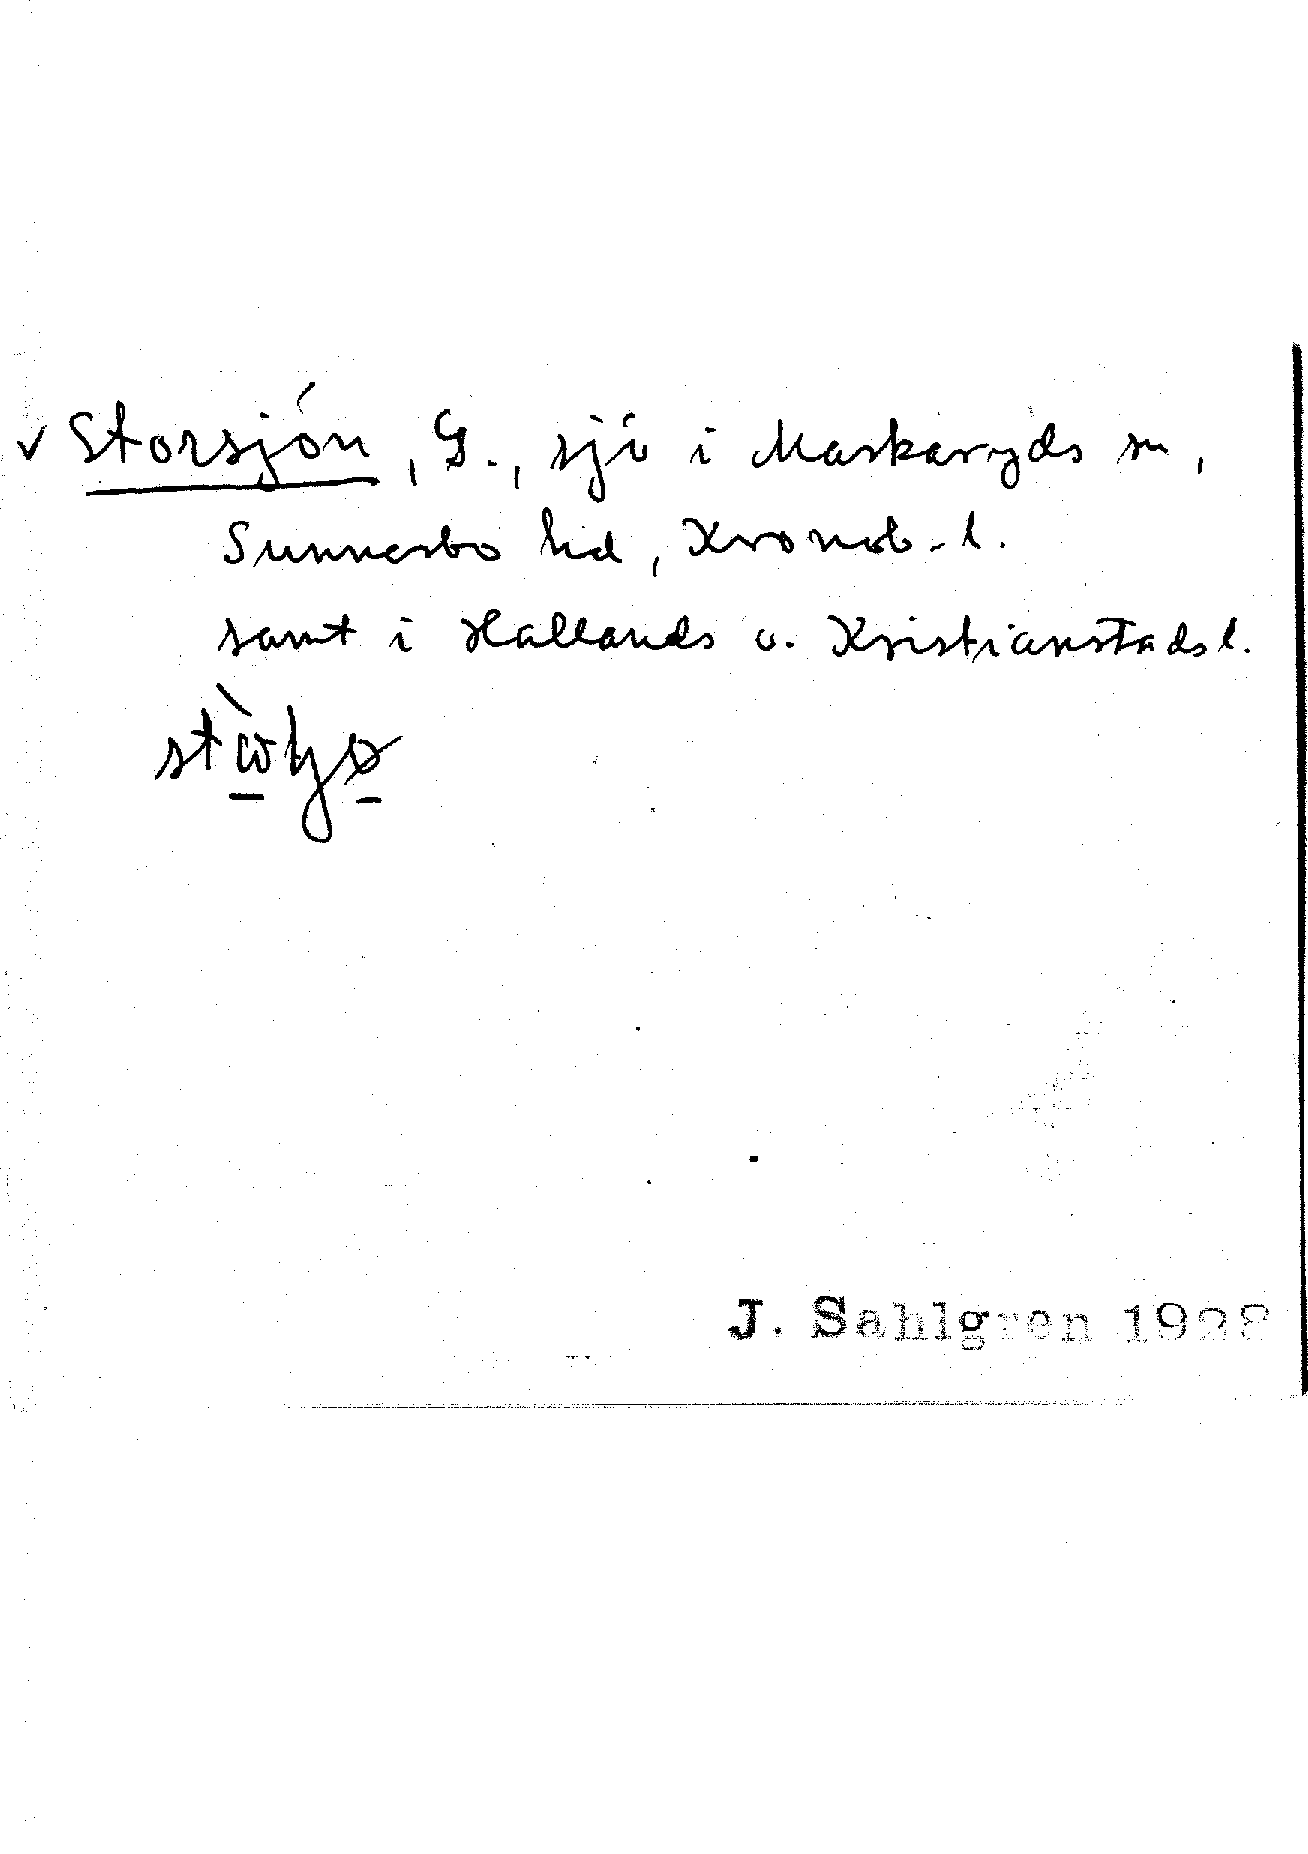 v Storsjön, G., sjö i Markaryds sn,
Sunnerbo hd, Kronob. l.
samt i Hallands o. Kristianstads l.
J. Sahlgren 1928